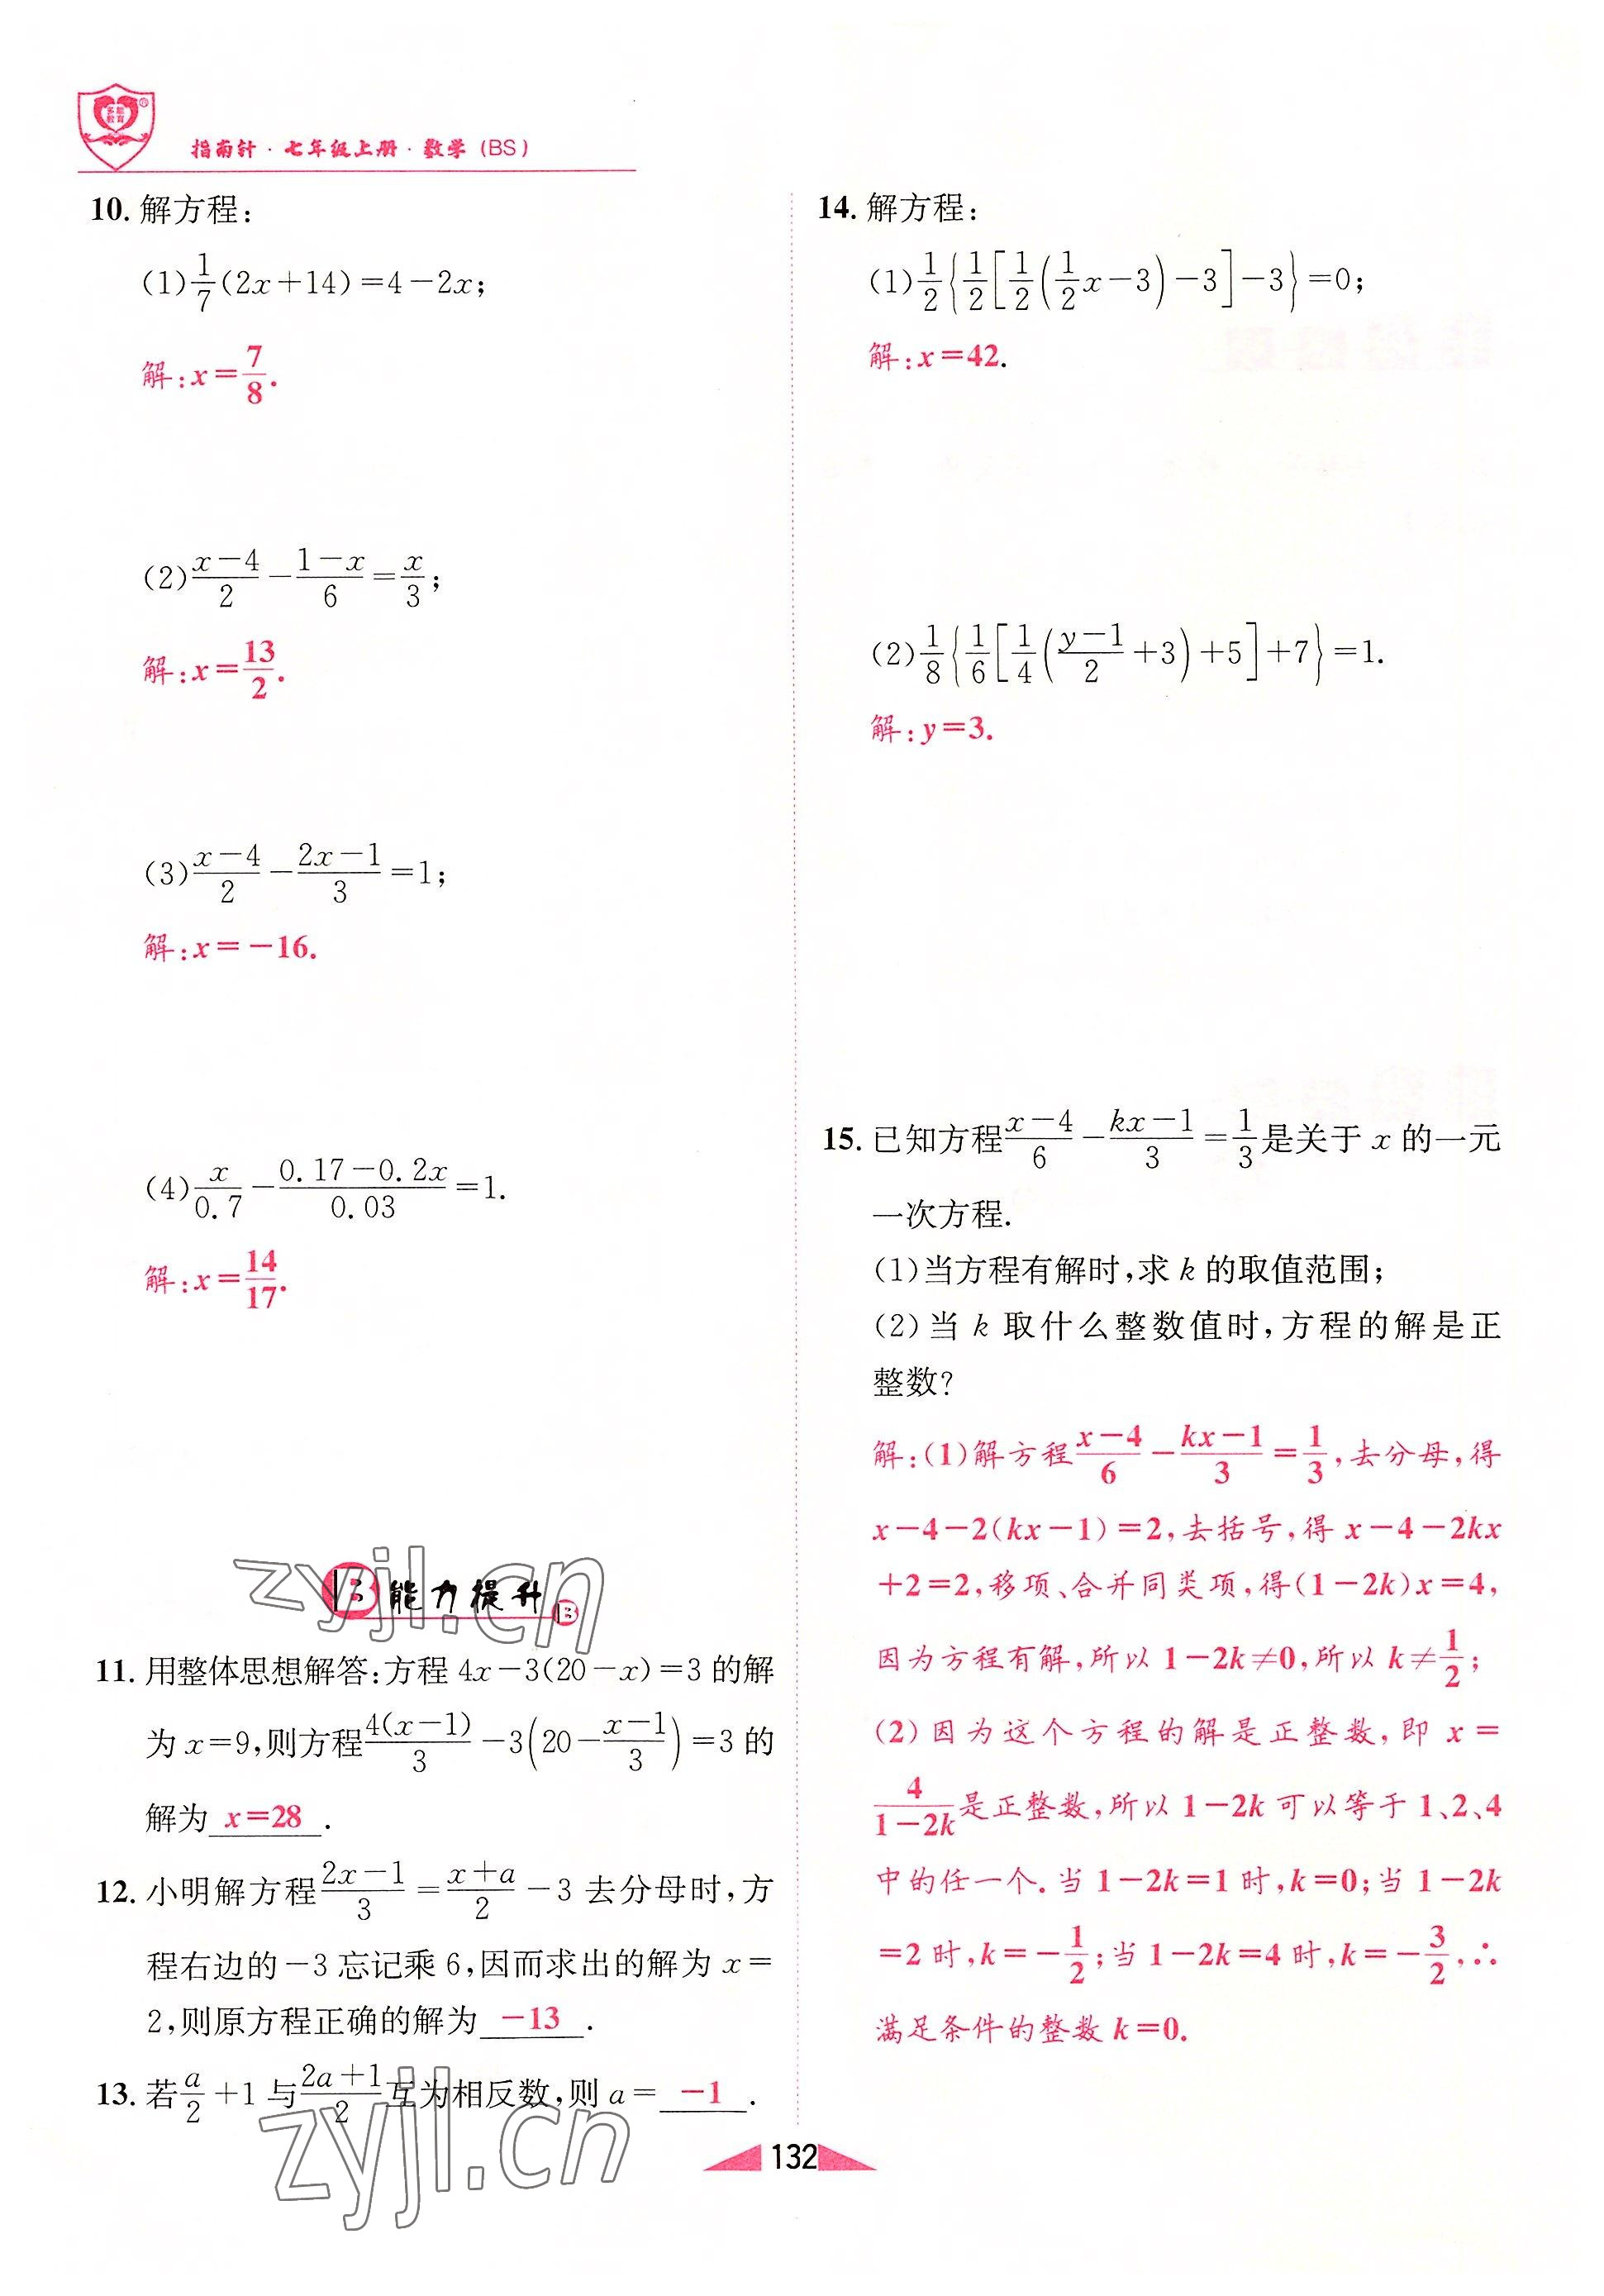 多能
教育
指南针·七年级上册·数学(BS)
10. 解方程:
(1)1/7(2x+14)=4-2x;
解:x=7/8.
(2)(x-4)/2-(1-x)/6=x/3;
解:x=13/2.
(3)(x-4)/2-(2x-1)/3=1;
解:x=-16.
(4)x/0.7-(0.17-0.2x)/0.03=1.
解:x=14/17.
B 能力提升 B
11. 用整体思想解答:方程 4x-3(20-x)=3 的解
为 x=9,则方程4(x-1)/3-3(20-(x-1)/3)=3 的
解为 x=28 .
12. 小明解方程(2x-1)/3=(x+a)/2-3 去分母时,方
程右边的-3忘记乘 6,因而求出的解为 x=
2,则原方程正确的解为 -13 .
13. 若a/2+1与(2a+1)/2互为相反数,则 a= -1 .
14. 解方程:
(1)1/2{1/2[1/2(1/2x-3)-3]-3}=0;
解:x=42.
(2)1/8{1/6[1/4((y-1)/2+3)+5]+7}=1.
解:y=3.
15. 已知方程(x-4)/6-(kx-1)/3=1/3是关于 x 的一元
一次方程.
(1)当方程有解时,求 k 的取值范围;
(2)当 k 取什么整数值时,方程的解是正
整数?
解:(1)解方程(x-4)/6-(kx-1)/3=1/3,去分母,得
x-4-2(kx-1)=2,去括号,得 x-4-2kx
+2=2,移项、合并同类项,得(1-2k)x=4,
因为方程有解,所以 1-2k≠0,所以 k≠1/2;
(2)因为这个方程的解是正整数,即 x=
4/(1-2k)是正整数,所以 1-2k 可以等于 1、2、4
中的任一个.当 1-2k=1 时,k=0;当 1-2k
=2 时,k=-1/2;当 1-2k=4 时,k=-3/2,∴
满足条件的整数 k=0.
132
zyjl.cn
zyjl.cn